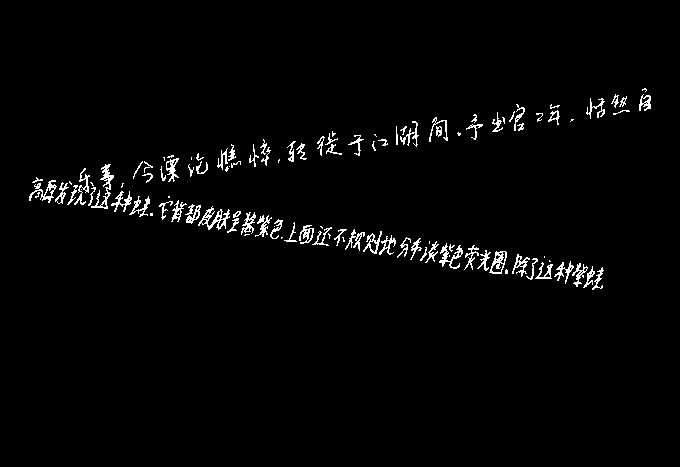 乐事，今漂沦憔悴，转徙于江湖间。予出官二年，恬然自
高原发现了这种蛙。它背部皮肤呈酱紫色，上面还不规则地分布淡紫色荧光圈。除了这种紫蛙